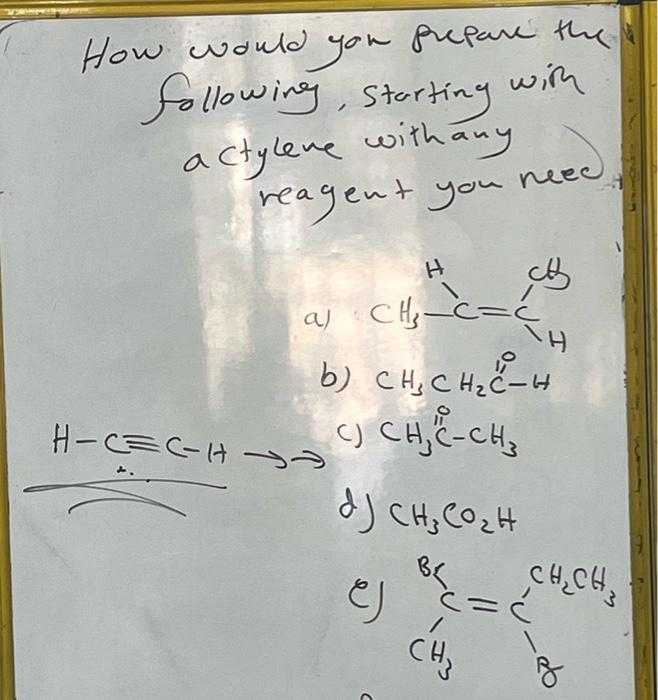 How would you prepare the
following, starting with
actylene with any
reagent you need
a) CH₃-C=C
H
CH₃
H
b) CH₃CH₂C-H
O
H-C≡C-H →→
c) CH₃C-CH₃
O
d) CH₃CO₂H
e) C=C
Br
CH₂CH₃
CH₃
Br